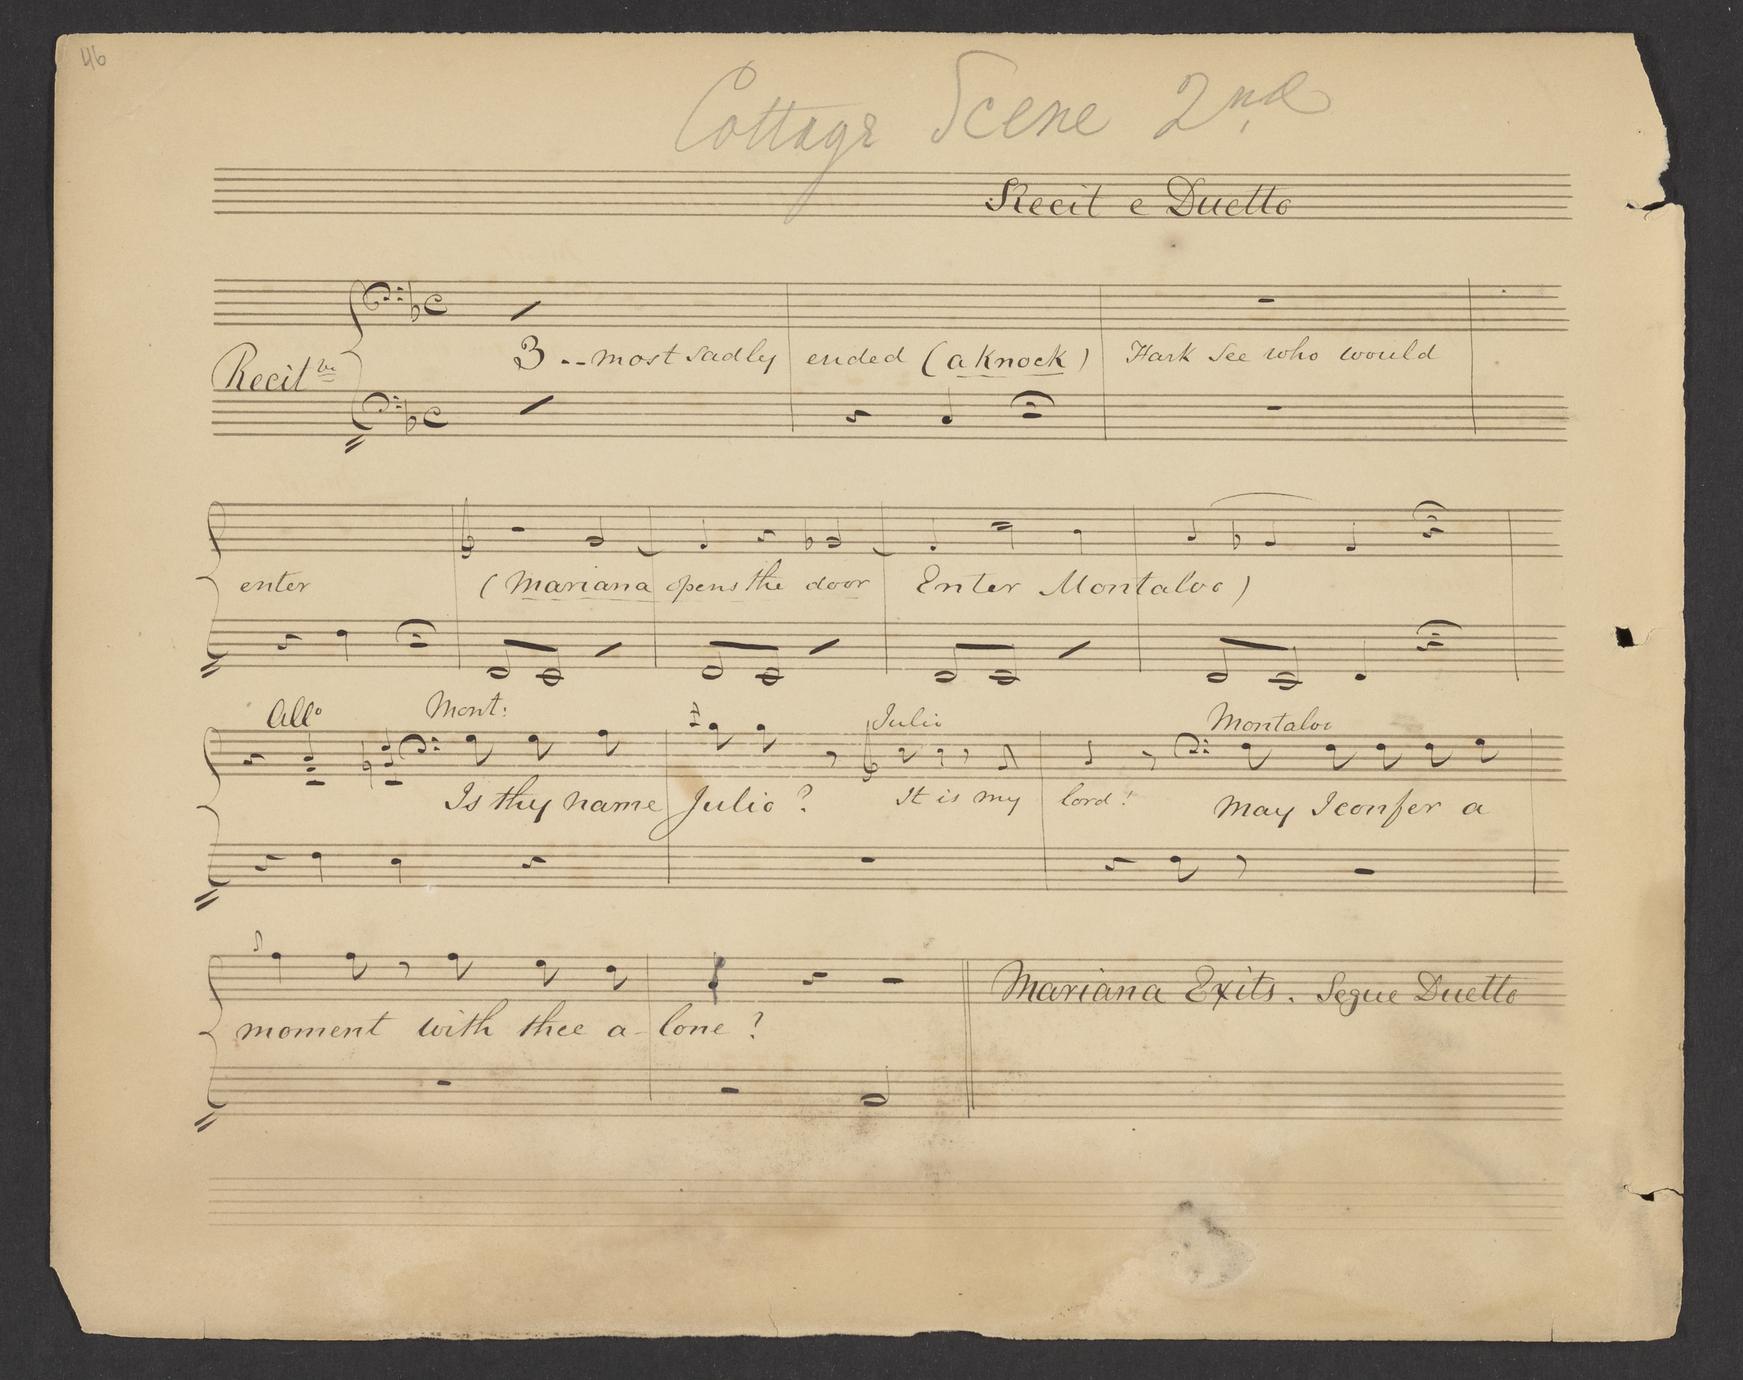 46
Cottage Scene 2nd
Recit e Duetto
3 -- most sadly ended (a knock) Hark See who would
Recit ve
enter (Mariana opens the door Enter Montaloo)
Allo Mont: Julio Montaloo
Is thy name Julio? It is my lord! May I confer a
moment with thee a-lone?
Mariana Exits. Segue Duetto